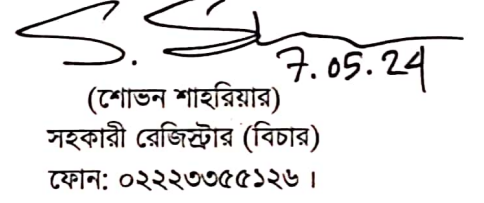 7.05.24
(শোভন শাহরিয়ার)
সহকারী রেজিস্ট্রার (বিচার)
ফোন: ০২২২৩৩৫৫১২৬।